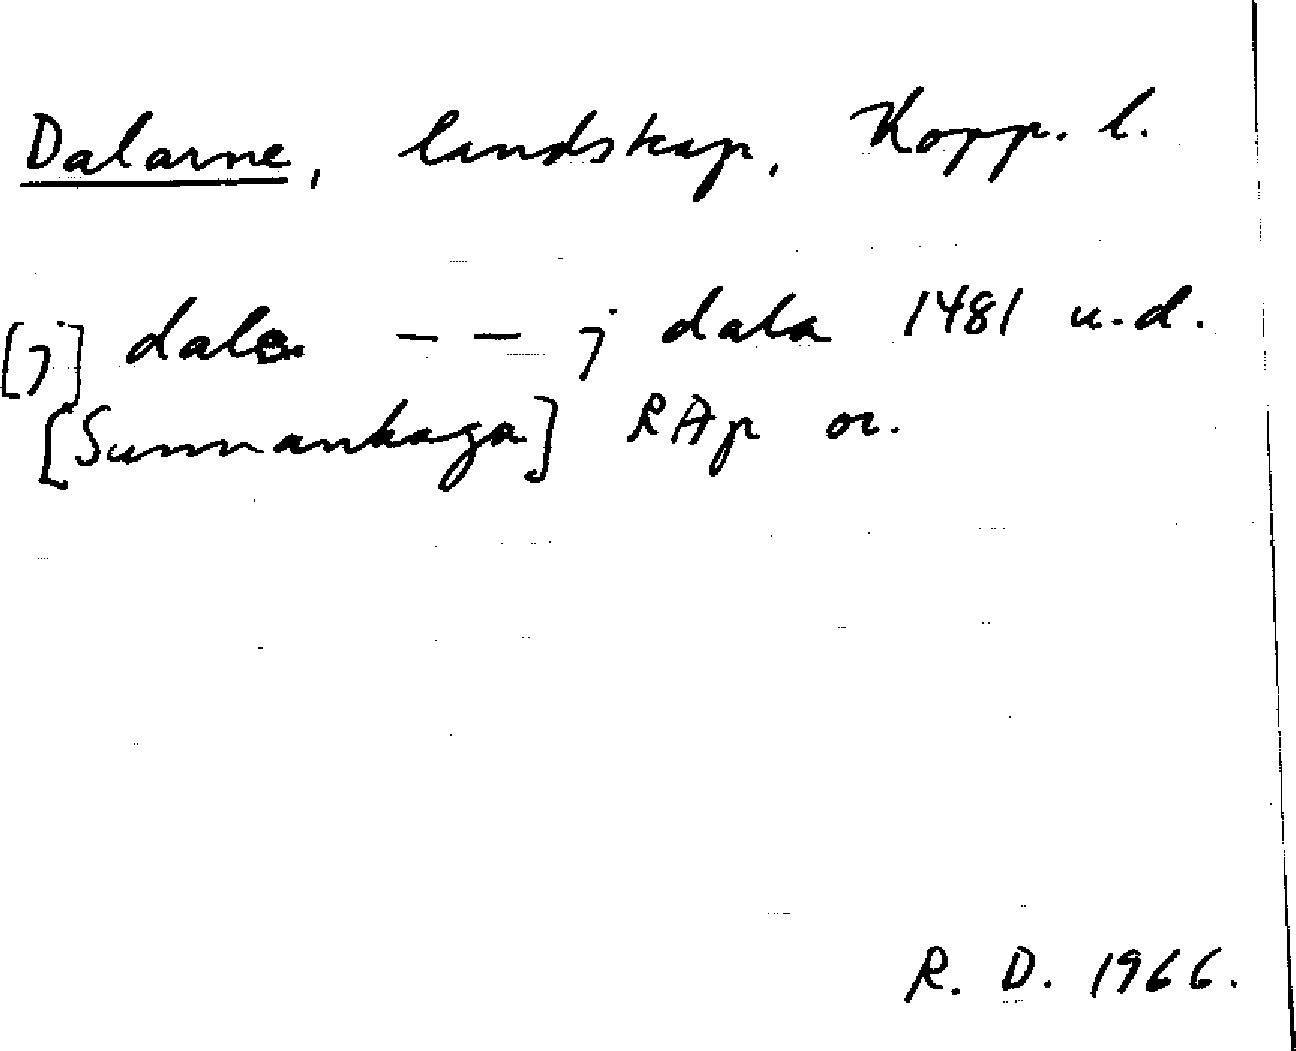 Dalarne, landskap, Kopp. l.
[j] dale. — — j dala 1481 u.d.
[Sunnanhaga] RAp or.
R. D. 1966.